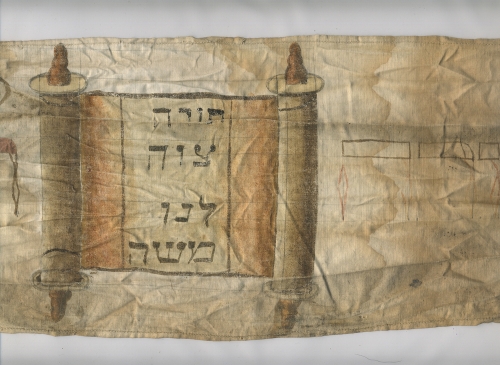 תורה
צוה
לנו
משה